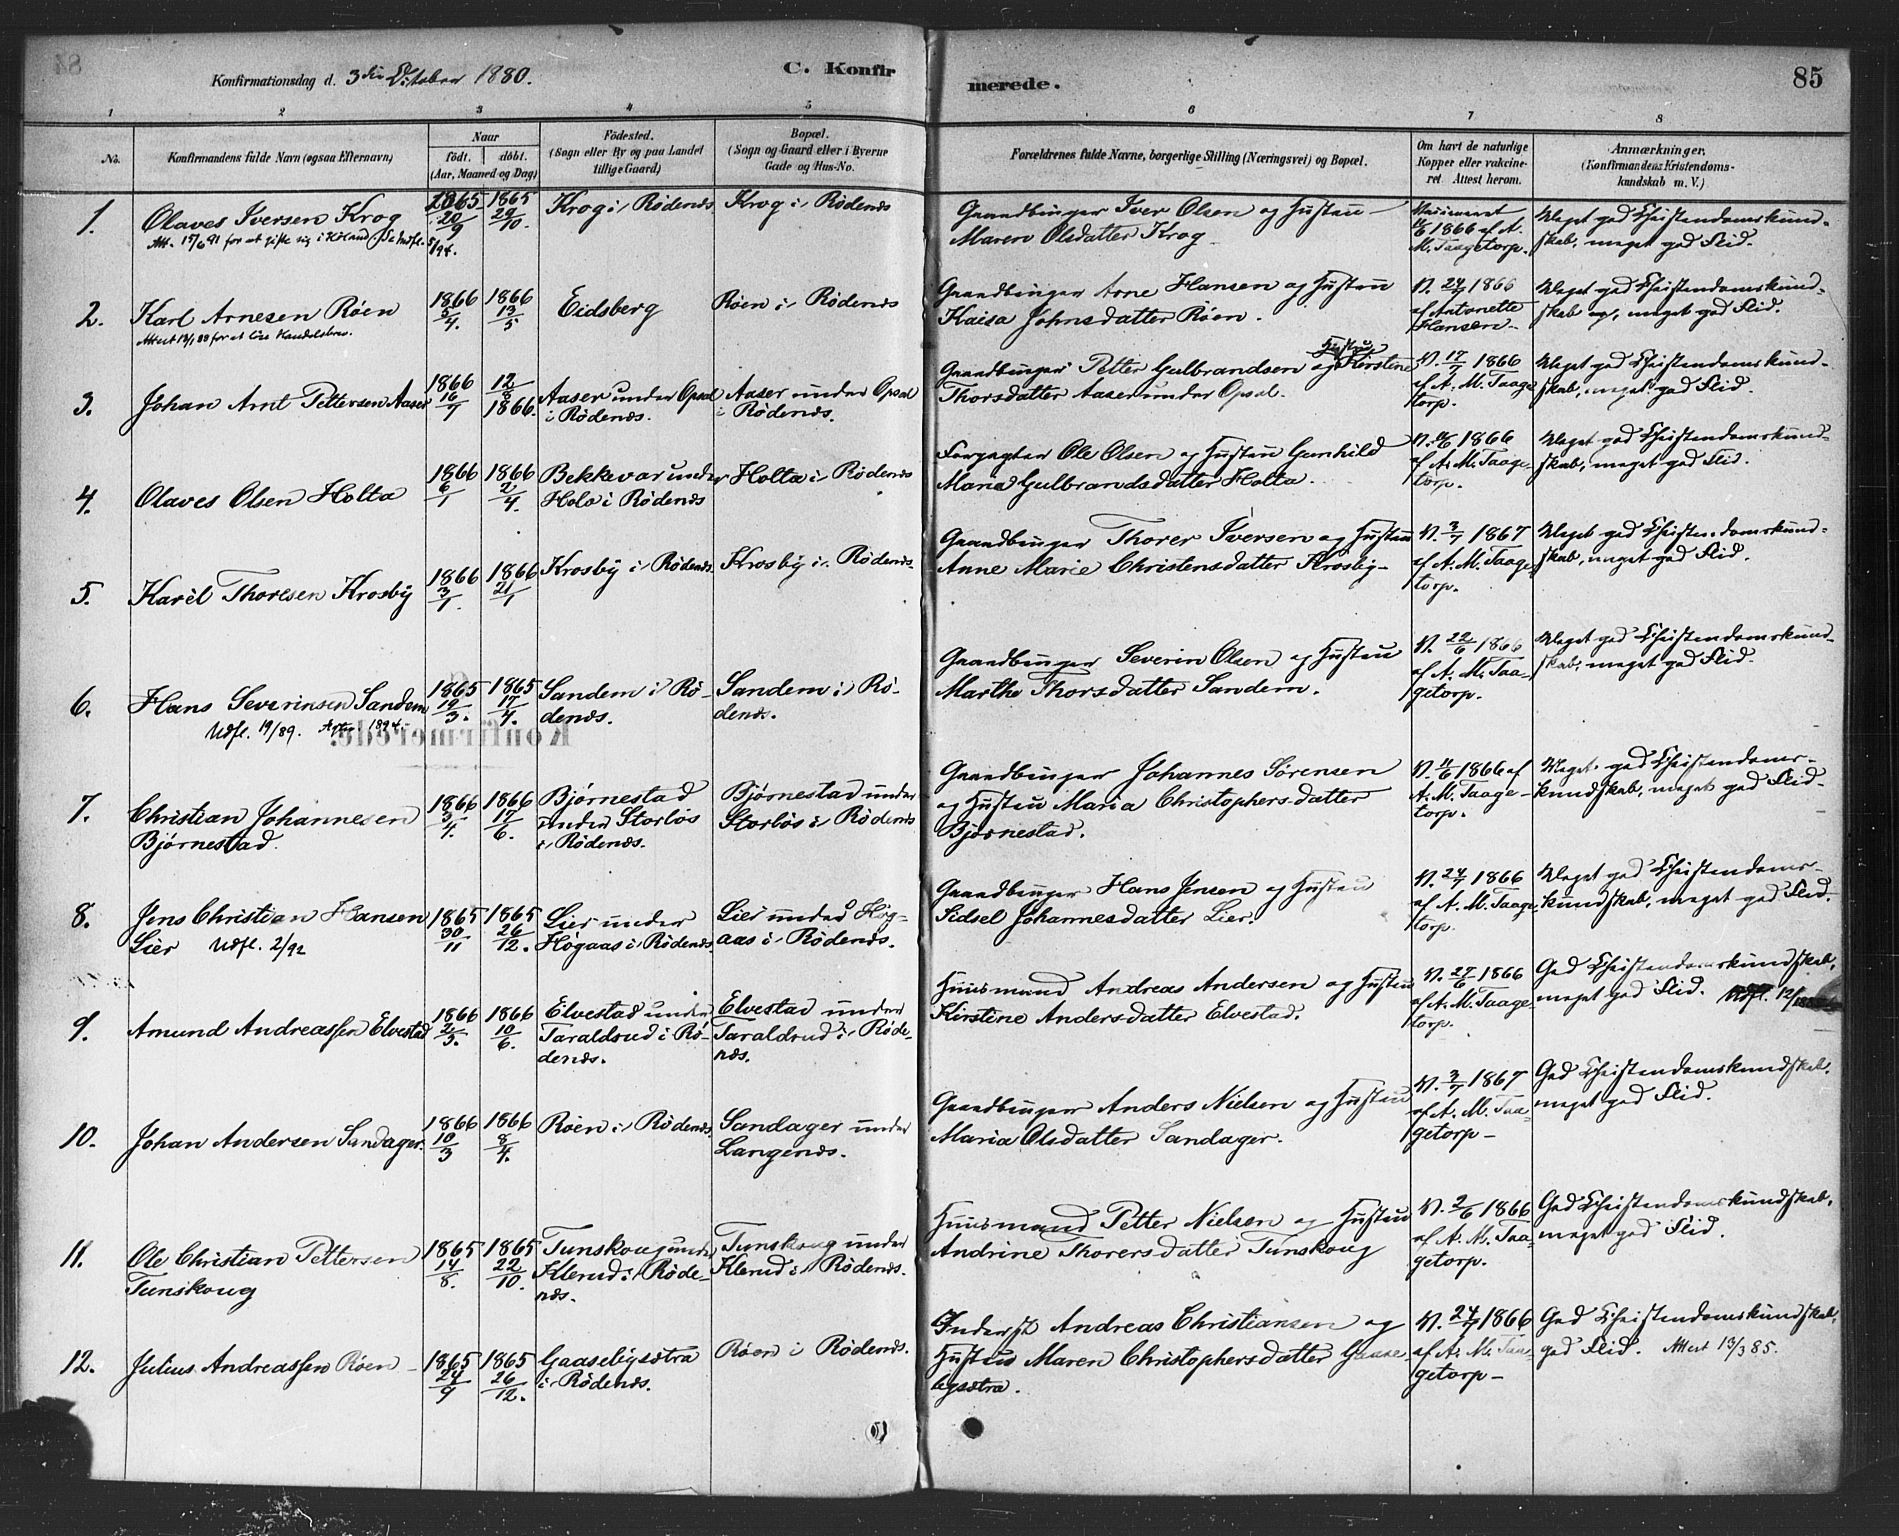 Konfirmationsdag d. 3die Oktober 1880.
C. Konfirmerede.
85
1 2 3 4 5 6 7 8
No.
Konfirmandens fulde Navn (ogsaa Efternavn)
Naar
födt. döbt.
(Aar, Maaned og Dag)
Födested.
(Sogn eller By og paa Landet
tillige Gaard)
Bopæl.
(Sogn og Gaard eller i Byerne
Gade og Hus-No.
Forældrenes fulde Navne, borgerlige Stilling (Næringsvei) og Bopæl.
Om havt de naturlige
Kopper eller vakcine-
ret. Attest herom.
Anmærkninger,
(Konfirmandens Kristendoms-
kundskab m. V.)
1. Olaves Iversen Krog
Att. 17/6 91 for at gifte sig i Höland
1865 20/9
1865 29/10
Krog i Rödenæs
Krog i Rödenæs
Gaardbruger Iver Olsen og Hustru
Maren Olsdatter Krog
1866 af A.
M. Taagetorp.
Meget god Christendomskund-
skab, meget god Flid.
2. Karl Arnesen Röen
1866 5/4.
1866 13/5
Eidsberg
Röen i Rödenæs
Gaardbruger Arne Hansen og Hustru
Kaisa Johnsdatter Röen.
V. 24/7 1866
af Antonette
Hansen
Meget god Christendomskund-
skab og, meget god Flid.
3. Johan Arnt Pettersen Aaser
1866 16/7
12/8 1866.
Aaser under Opsal
i Rödenæs.
Aaser under Opsal
i Rödenæs.
Gaardbruger Petter Gulbrandsen og Hustru Kirstine
Thorsdatter Aaser under Opsal.
V. 17/7 1866
af A. M. Taage
torp.
Meget god Christendomskund-
skab, meget god Flid.
4. Olaves Olsen Holta
1866 6/1
1866 2/4.
Bekkevar under
Hola i Rödenæs
Holta i Rödenæs
Forpagter Ole Olsen og Hustru Gunhild
Maria Gulbrandsdatter Holta.
V. 1866
af A. M. Taage-
torp.
Meget god Christendomskund-
skab, meget god Flid.
5. Karel Thoresen Krosby
1866 3/1.
1866 21/1
Krosby i Rödenæs.
Krosby i Rödenæs.
Gaardbruger Thorer Iversen og Hustru
Anne Marie Christensdatter Krosby
V. 3/7 1867
af A. M. Taage,
torp.
Meget god Christendomskund-
skab, meget god Flid.
6. Hans Severinsen Sandem
Udfl. 19/89. 1894
1865 19/3.
1865 17/4.
Sandem i Rö-
denæs.
Sandem i Rö-
denæs.
Gaardbruger Severin Olsen og Hustru
Marthe Thorsdatter Sandem.
V. 22/6 1866
af A. M. Taa-
getorp.
Meget god Christendomskund-
skab, meget god Flid.
7. Christian Johannesen
Björnestad.
1866 3/4.
1866 17/6.
Björnestad
under Storlös
i Rödenæs.
Björnestad under
Storlös i Rödenæs
Gaardbruger Johannes Sörensen
og Hustru Maria Christophersdatter
Björnestad.
V. 1866 af
A. M. Taage-
torp.
Meget god Christendoms-
kundskab, meget god Flid.
8. Jens Christian Hansen
Lier Udfl. 2/92
1865 30/11
1865 26/12.
Lier under
Högaas i Rödenæs.
Lier under Hög-
aas i Rödenæs.
Gaardbruger Hans Jensen og Hustru
Sidsel Johannesdatter Lier.
V. 24/7 1866
af A. M. Taage,
torp.
Meget god Christendoms-
kundskab, meget god Flid.
9. Amund Andreassen Elvestad
1866 2/3.
1866 10/6.
Elvestad under
Taraldrud i Rö-
denæs.
Elvestad under
Taraldrud i Röde-
næs.
Huusmand Andreas Andersen og Hustru
Kirstine Andersdatter Elvestad.
V. 27/6 1866
af A. M. Taage-
torp.
God Christendomskundskab,
meget god Flid.
10. Johan Andersen Sandager.
1866 10/3
1866 8/4.
Röen i Rödenæs
Sandager under
Langenæs.
Gaardbruger Anders Nielsen og Hustru
Maria Olsdatter Sandager.
V. 3/7 1867
af A. M. Taa-
getorp
God Christendomskundskab.
meget god Flid.
11. Ole Christian Pettersen
Tunskoug
1865 14/8.
1865 22/10.
Tunskoug under
Klerud i Röde-
næs.
Tunskoug under
Klerud i Rödenæs.
Huusmand Petter Nielsen og Hustru
Andrine Thorersdatter Tunskoug
V. 2/6 1866
af A. M. Taa-
getorp.
God Christendomskundskab,
meget god Flid.
12. Julius Andreassen Röen
1865 24/9
1865 26/12.
Gaaseby­sætra
i Rödenæs.
Röen i Rödenæs.
Inderst Andreas Christiansen og
Hustru Maren Christophersdatter Gaase-
bysætra.
V. 24/7 1866
af A. M. Taa-
getorp
God Christendomskundskab,
god Flid. Attest 13/3 85.